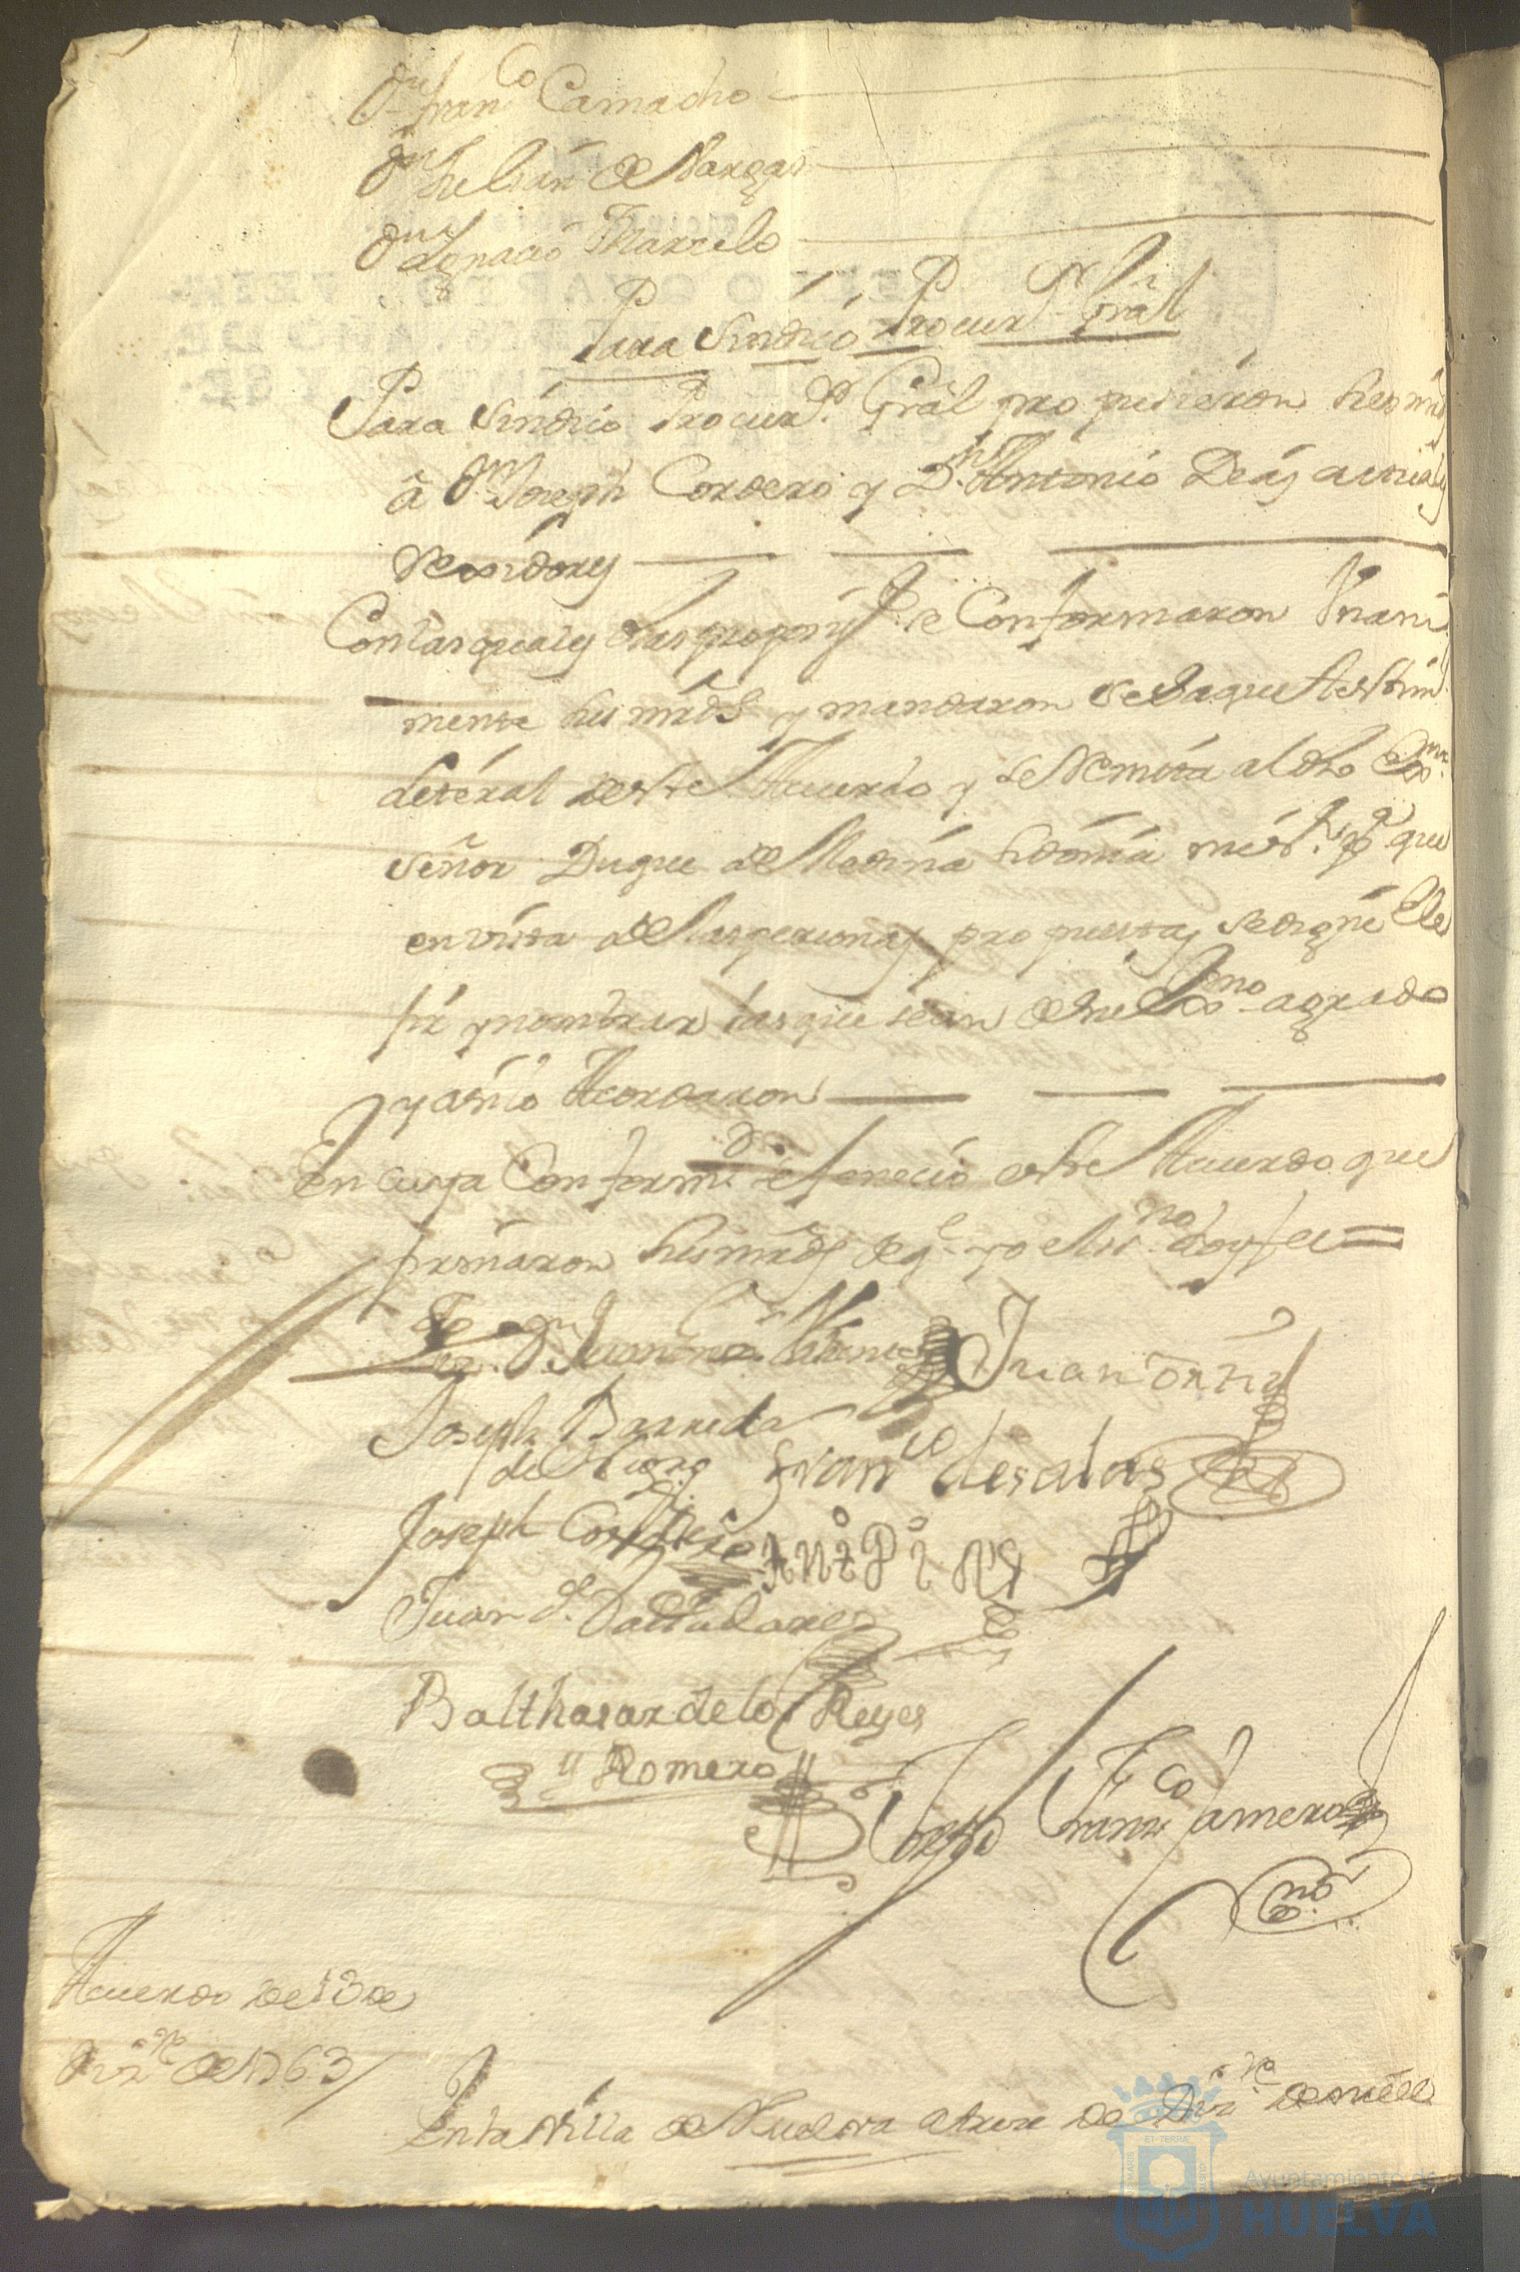 Dn Franco Camacho
Dn Julian de Vargas
Dn Ignacio Marcelo
Para Sindico Procurr Gral
Para Sindico Procurr Gral propusieron sus mrds
â Dn Joseph Cordero y Dn Antonio Deas actuales
Rexidores
Con las quales dhas proposs se Conformaron Vnani
mente sus mrds y mandaron se saque testim
literal deste Acuerdo y se Remita al dho Exmo
Señor Duque de Medina Sidonia mi sr pa que
en vista de las personas propuestas se digne Ele
jir y nombrar las que sean de su Exmo agrado
y asi lo Acordaron
En cuya Conformd se fenecio este Acuerdo que
firmaron sus mrds de qe yo el ssno doy fee =
Juan Ortiz
Joseph Barreda
Franco de salas
Joseph Cordero
Anto Pinz
Juan de Valladares
Balthasar de los Reyes
y Romero
Franco Camero
sno
Acuerdo de 13 de
Dizre de 1763
En la Villa de Huelva a trese de Dizre de mill
ET TERRÆ
Ayuntamiento de
HUELVA